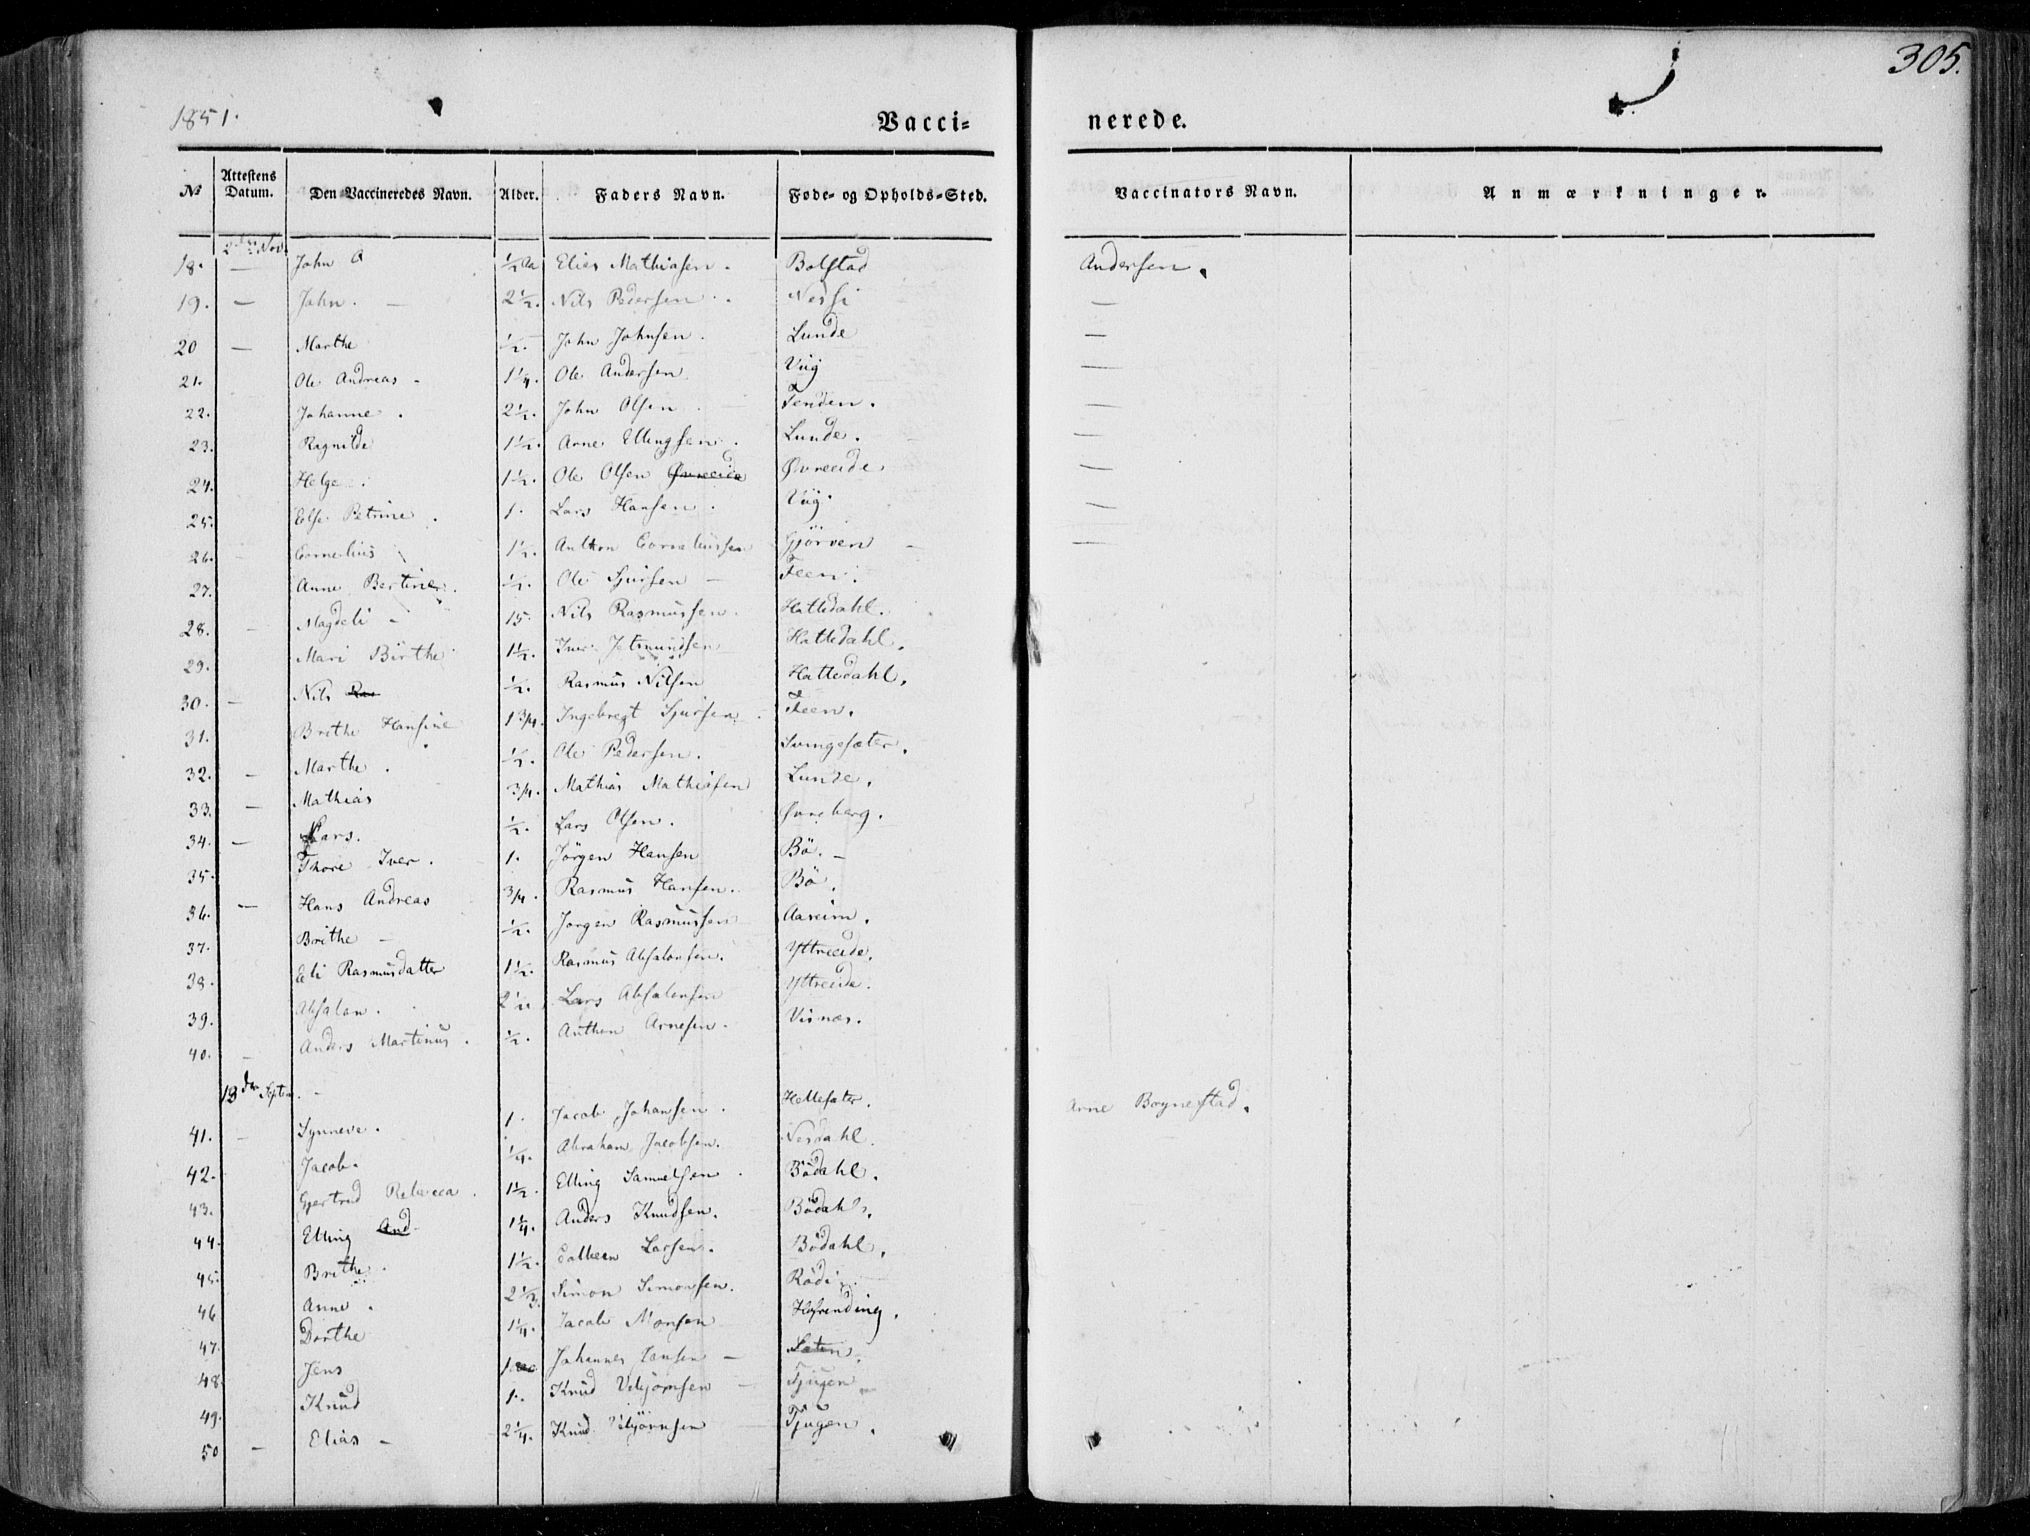 305.
1851.
Vacci- nerede.
No Attestens Datum. Den Vaccineredes Navn. Alder. Faders Navn. Føde- og Opholds-Sted. Vaccinators Navn. Anmærkninger.
2den Nov.
18. — John 1/2 Aa Elias Mathiasen. Bolstad Andersen.
19. — John. — 2 1/2. Nils Pedersen. Nessi —
20 — Marthe 1/2. John Johnsen. Lunde —
21. Ole Andreas. 1 1/4. Ole Andersen Viig —
22. Johanne. 2 1/2. John Olsen. Tenden. —
23. Ragnilde 1 1/2. Arne Ellingsen. Lunde. —
24. Helge. 1 1/2. Ole Olsen Øvreeide Øvreeide —
25. Else Petrine. 1. Lars Hansen. Viig. —
26. Cornelius 1 1/2. Anthon Corneliussen Gjörven — —
27. Anne Bertine. 1/2. Ole Sjursen — Feen.
28. — Magdeli — 15. Nils Rasmussen. Hattedahl.
29. Mari Birthe 1 1/2. Iver Jetmundsen Hattedahl.
30. — Nils Ras 1/2. Rasmus Nilsen Hattedahl.
31. Brithe Hansine 1 3/4. Ingebregt Sjursen. Feen.
32. — Marthe. 1/2. Ole Pedersen. Svingesæter.
33. — Mathias 3/4. Mathias Mathiasen Lunde.
34. — Lars. 1/2. Lars Olsen. Øvreberg.
35. Thore Iver. 1. Jörgen Hansen Bö. —
36. — Hans Andreas 3/4. Rasmus Hansen. Bö.
37. Brithe — 1/2. Jörgen Rasmussen Aareim.
38. Eli Rasmusdatter 1 1/2. Rasmus Absalonsen. Yttreeide.
39. Absalon. 2 1/2 Lars Absalonsen Yttreeide.
40. — Anders Martinus. 1/2. Anthon Arnesen. Visnæs.
13de Septem. —
41. — Synneve. 1. Jacob Johansen. Hellesæter. Arne Boynestad.
42. Jacob. 1/4. Abraham Jacobsen. Nesdahl.
43. Gjertrud Rebecca. 1 1/2. Elling Samuelsen. Bödahl.
44. Elling And 1 1/4. Anders Knudsen. Bödahl.
45. Brithe. 1 1/2. Larsen. Bödahl.
46 Anne. 2 1/3. Simon Simonsen. Rödi.
47. Dorthe 1 1/4. Jacob Monsen
48. Jens 1. Johannes Jansen — Sæten.
49. Knud 1. Knud Vebjörnsen — Tjugen
50 — Elias — 2 1/4. Knud Vebjörnsen Tjugen.